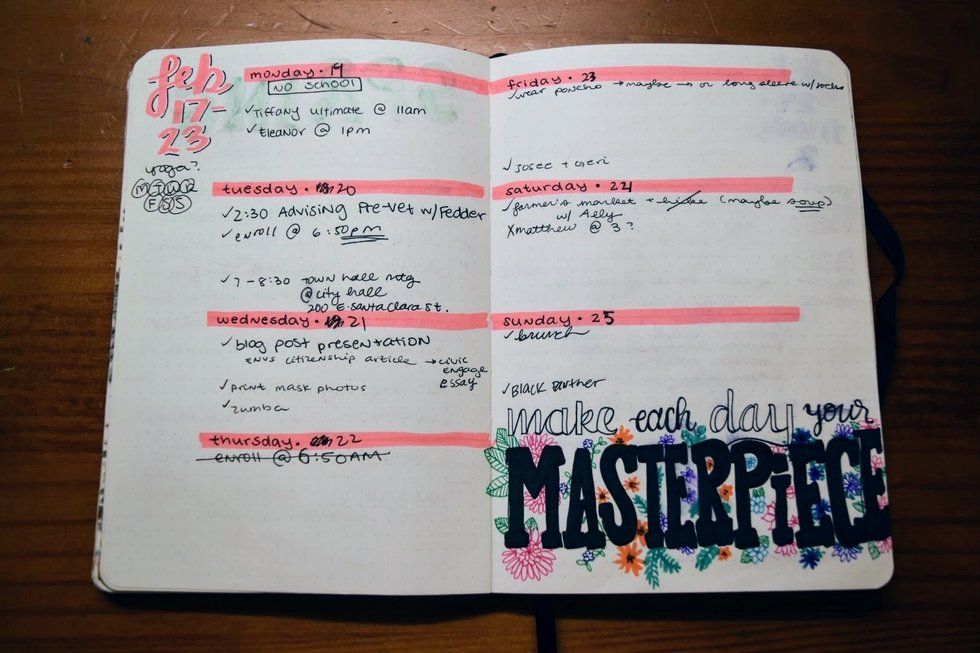 feb
17-
23
yoga?
M T W R
F S S
monday • 19
NO SCHOOL
✓Tiffany ultimate @ 11am
✓Eleanor @ 1pm
tuesday • 20
✓2:30 Advising Pre-vet w/Fedder
✓enroll @ 6:50pm
✓7-8:30 TOWN hall mtg
@city hall
200 E. Santa Clara St.
wednesday • 21
✓blog post presentation
ENVS citizenship article → civic
engage
essay
✓print mask photos
✓zumba
thursday • 22
enroll @ 6:50AM
friday • 23
✓wear poncho → maybe → or long sleeve w/
✓Josee + Geri
saturday • 24
✓farmer's market + hike (maybe soup)
w/ Ally
Xmatthew @ 3?
sunday • 25
✓brunch
✓Black Panther
make each day your
MASTERPiECE